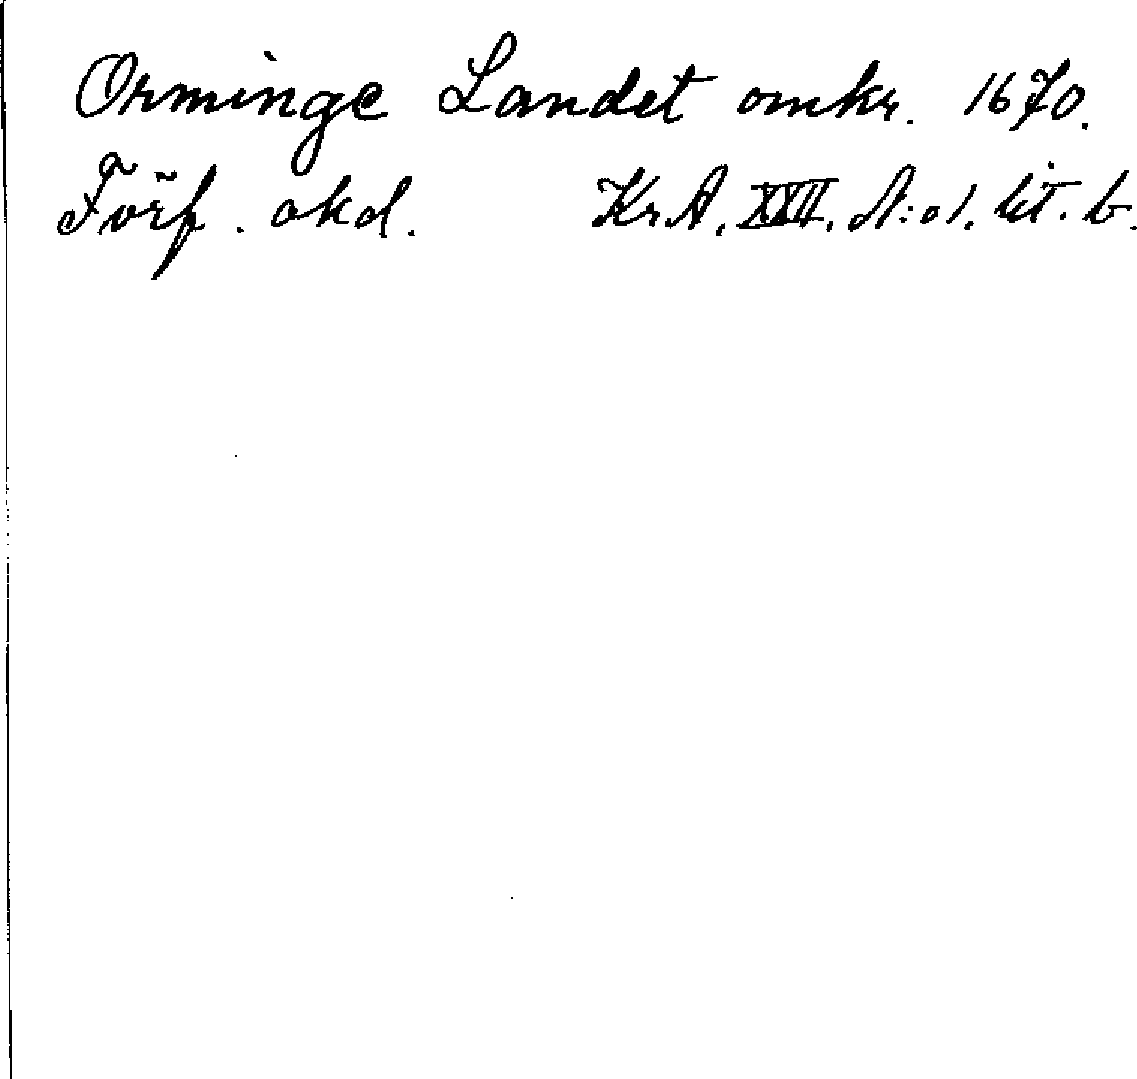 Orminge Landet omkr. 1670.
Förf. okd. Kr.A. XXII. N:o 1. lit. b.